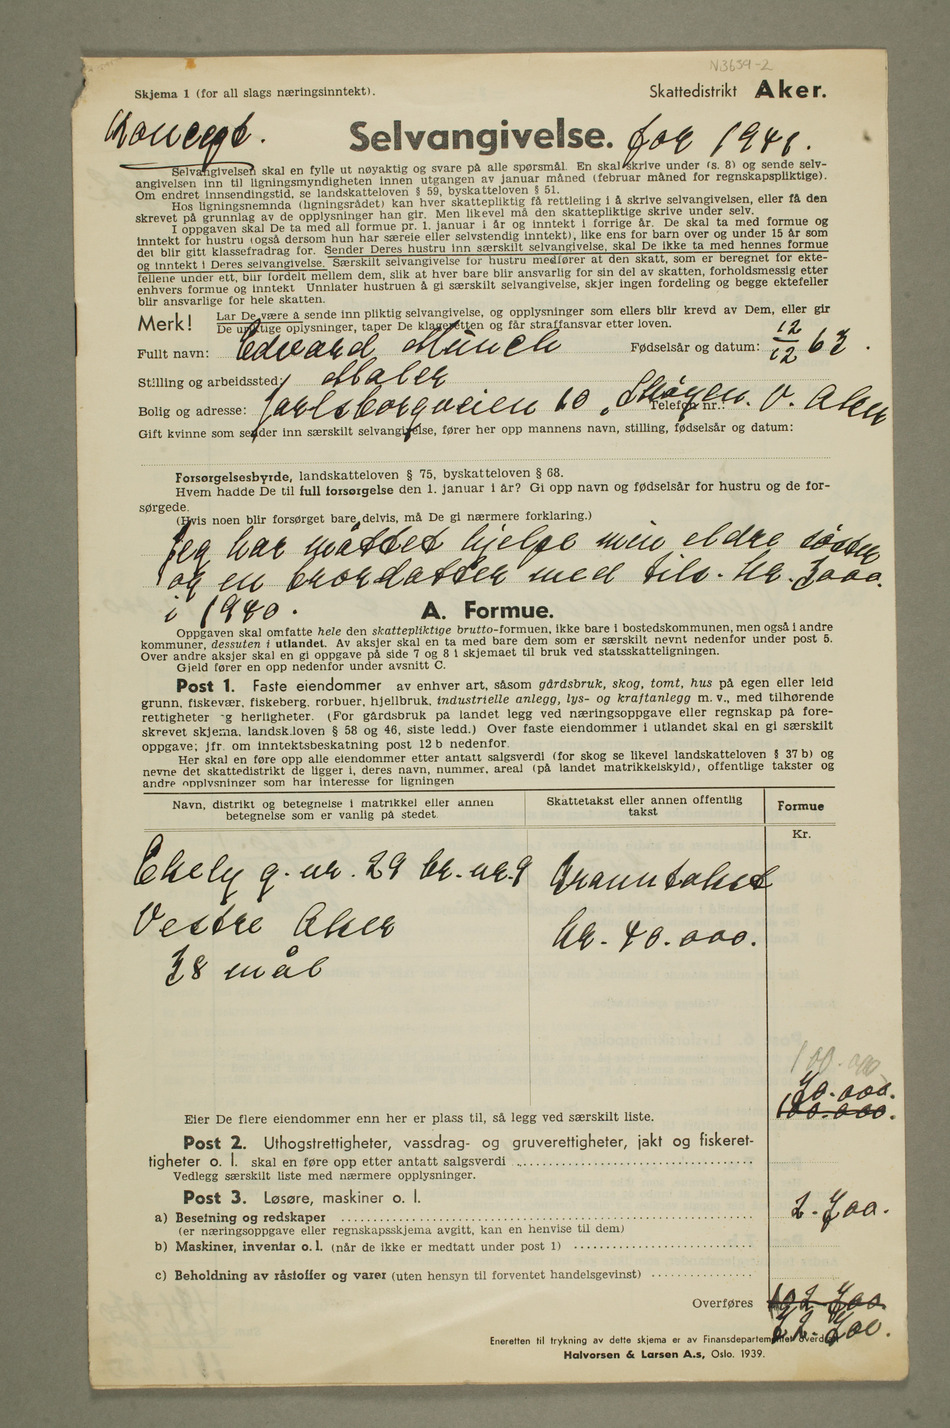 N3659-2
Skjema 1 (for all slags næringsinntekt).
Skattedistrikt Aker.
Koncept.
Selvangivelse. for 1941.
Selvangivelsen skal en fylle ut nøyaktig og svare på alle spørsmål. En skal skrive under (s. 8) og sende selv-
angivelsen inn til ligningsmyndigheten innen utgangen av januar måned (februar måned for regnskapspliktige).
Om endret innsendingstid, se landskatteloven § 59, byskatteloven § 51.
Hos ligningsnemnda (ligningsrådet) kan hver skattepliktig få rettleiing i å skrive selvangivelsen, eller få den
skrevet på grunnlag av de opplysninger han gir. Men likevel må den skattepliktige skrive under selv.
I oppgaven skal De ta med all formue pr. 1. januar i år og inntekt i forrige år. De skal ta med formue og
inntekt for hustru (også dersom hun har særeie eller selvstendig inntekt), like ens for barn over og under 15 år som
det blir gitt klassefradrag for. Sender Deres hustru inn særskilt selvangivelse, skal De ikke ta med hennes formue
og inntekt i Deres selvangivelse. Særskilt selvangivelse for hustru medfører at den skatt, som er beregnet for ekte-
fellene under ett, blir fordelt mellem dem, slik at hver bare blir ansvarlig for sin del av skatten, forholdsmessig etter
enhvers formue og inntekt Unnlater hustruen å gi særskilt selvangivelse, skjer ingen fordeling og begge ektefeller
blir ansvarlige for hele skatten.
Merk! Lar De være å sende inn pliktig selvangivelse, og opplysninger som ellers blir krevd av Dem, eller gir
De uriktige oplysninger, taper De klageretten og får straffansvar etter loven.
Fullt navn: Edvard Munch Fødselsår og datum: 12/12 63.
Stilling og arbeidssted: Maler
Bolig og adresse: Jarlsborgveien 10, Skøyen. V. Aker Telefon nr.:
Gift kvinne som sender inn særskilt selvangivelse, fører her opp mannens navn, stilling, fødselsår og datum:
Forsørgelsesbyrde, landskatteloven § 75, byskatteloven § 68.
Hvem hadde De til full forsørgelse den 1. januar i år? Gi opp navn og fødselsår for hustru og de for-
sørgede.
(Hvis noen blir forsørget bare delvis, må De gi nærmere forklaring.)
Jeg har måttet hjelpe min eldre søster
og en brordatter med tils. kr. 3000.
i 1940.
A. Formue.
Oppgaven skal omfatte hele den skattepliktige brutto-formuen, ikke bare i bostedskommunen, men også i andre
kommuner, dessuten i utlandet. Av aksjer skal en ta med bare dem som er særskilt nevnt nedenfor under post 5.
Over andre aksjer skal en gi oppgave på side 7 og 8 i skjemaet til bruk ved statsskatteligningen.
Gjeld fører en opp nedenfor under avsnitt C.
Post 1. Faste eiendommer av enhver art, såsom gårdsbruk, skog, tomt, hus på egen eller leid
grunn, fiskevær, fiskeberg, rorbuer, hjellbruk, industrielle anlegg, lys- og kraftanlegg m. v., med tilhørende
rettigheter og herligheter. (For gårdsbruk på landet legg ved næringsoppgave eller regnskap på fore-
skrevet skjema, landsk.loven § 58 og 46, siste ledd.) Over faste eiendommer i utlandet skal en gi særskilt
oppgave; jfr. om inntektsbeskatning post 12 b nedenfor.
Her skal en føre opp alle eiendommer etter antatt salgsverdi (for skog se likevel landskatteloven § 37 b) og
nevne det skattedistrikt de ligger i, deres navn, nummer, areal (på landet matrikkelskyld), offentlige takster og
andre opplysninger som har interesse for ligningen
Navn, distrikt og betegnelse i matrikkel eller annen
betegnelse som er vanlig på stedet.
Skattetakst eller annen offentlig
takst
Formue
Kr.
Ekely g. nr. 29 br. nr. 9 Branntakst
Vestre Aker kr. 40.000.
38 mål
100.000
70.000.
100.000.
Eier De flere eiendommer enn her er plass til, så legg ved særskilt liste.
Post 2. Uthogstrettigheter, vassdrag- og gruverettigheter, jakt og fiskeret-
tigheter o. l. skal en føre opp etter antatt salgsverdi
Vedlegg særskilt liste med nærmere opplysninger.
Post 3. Løsøre, maskiner o. l.
a) Besetning og redskaper 2.700.
(er næringsoppgave eller regnskapsskjema avgitt, kan en henvise til dem)
b) Maskiner, inventar o. l. (når de ikke er medtatt under post 1)
c) Beholdning av råstoffer og varer (uten hensyn til forventet handelsgevinst)
Overføres 102.700
72.700.
Eneretten til trykning av dette skjema er av Finansdepartementet overdratt
Halvorsen & Larsen A.s, Oslo. 1939.